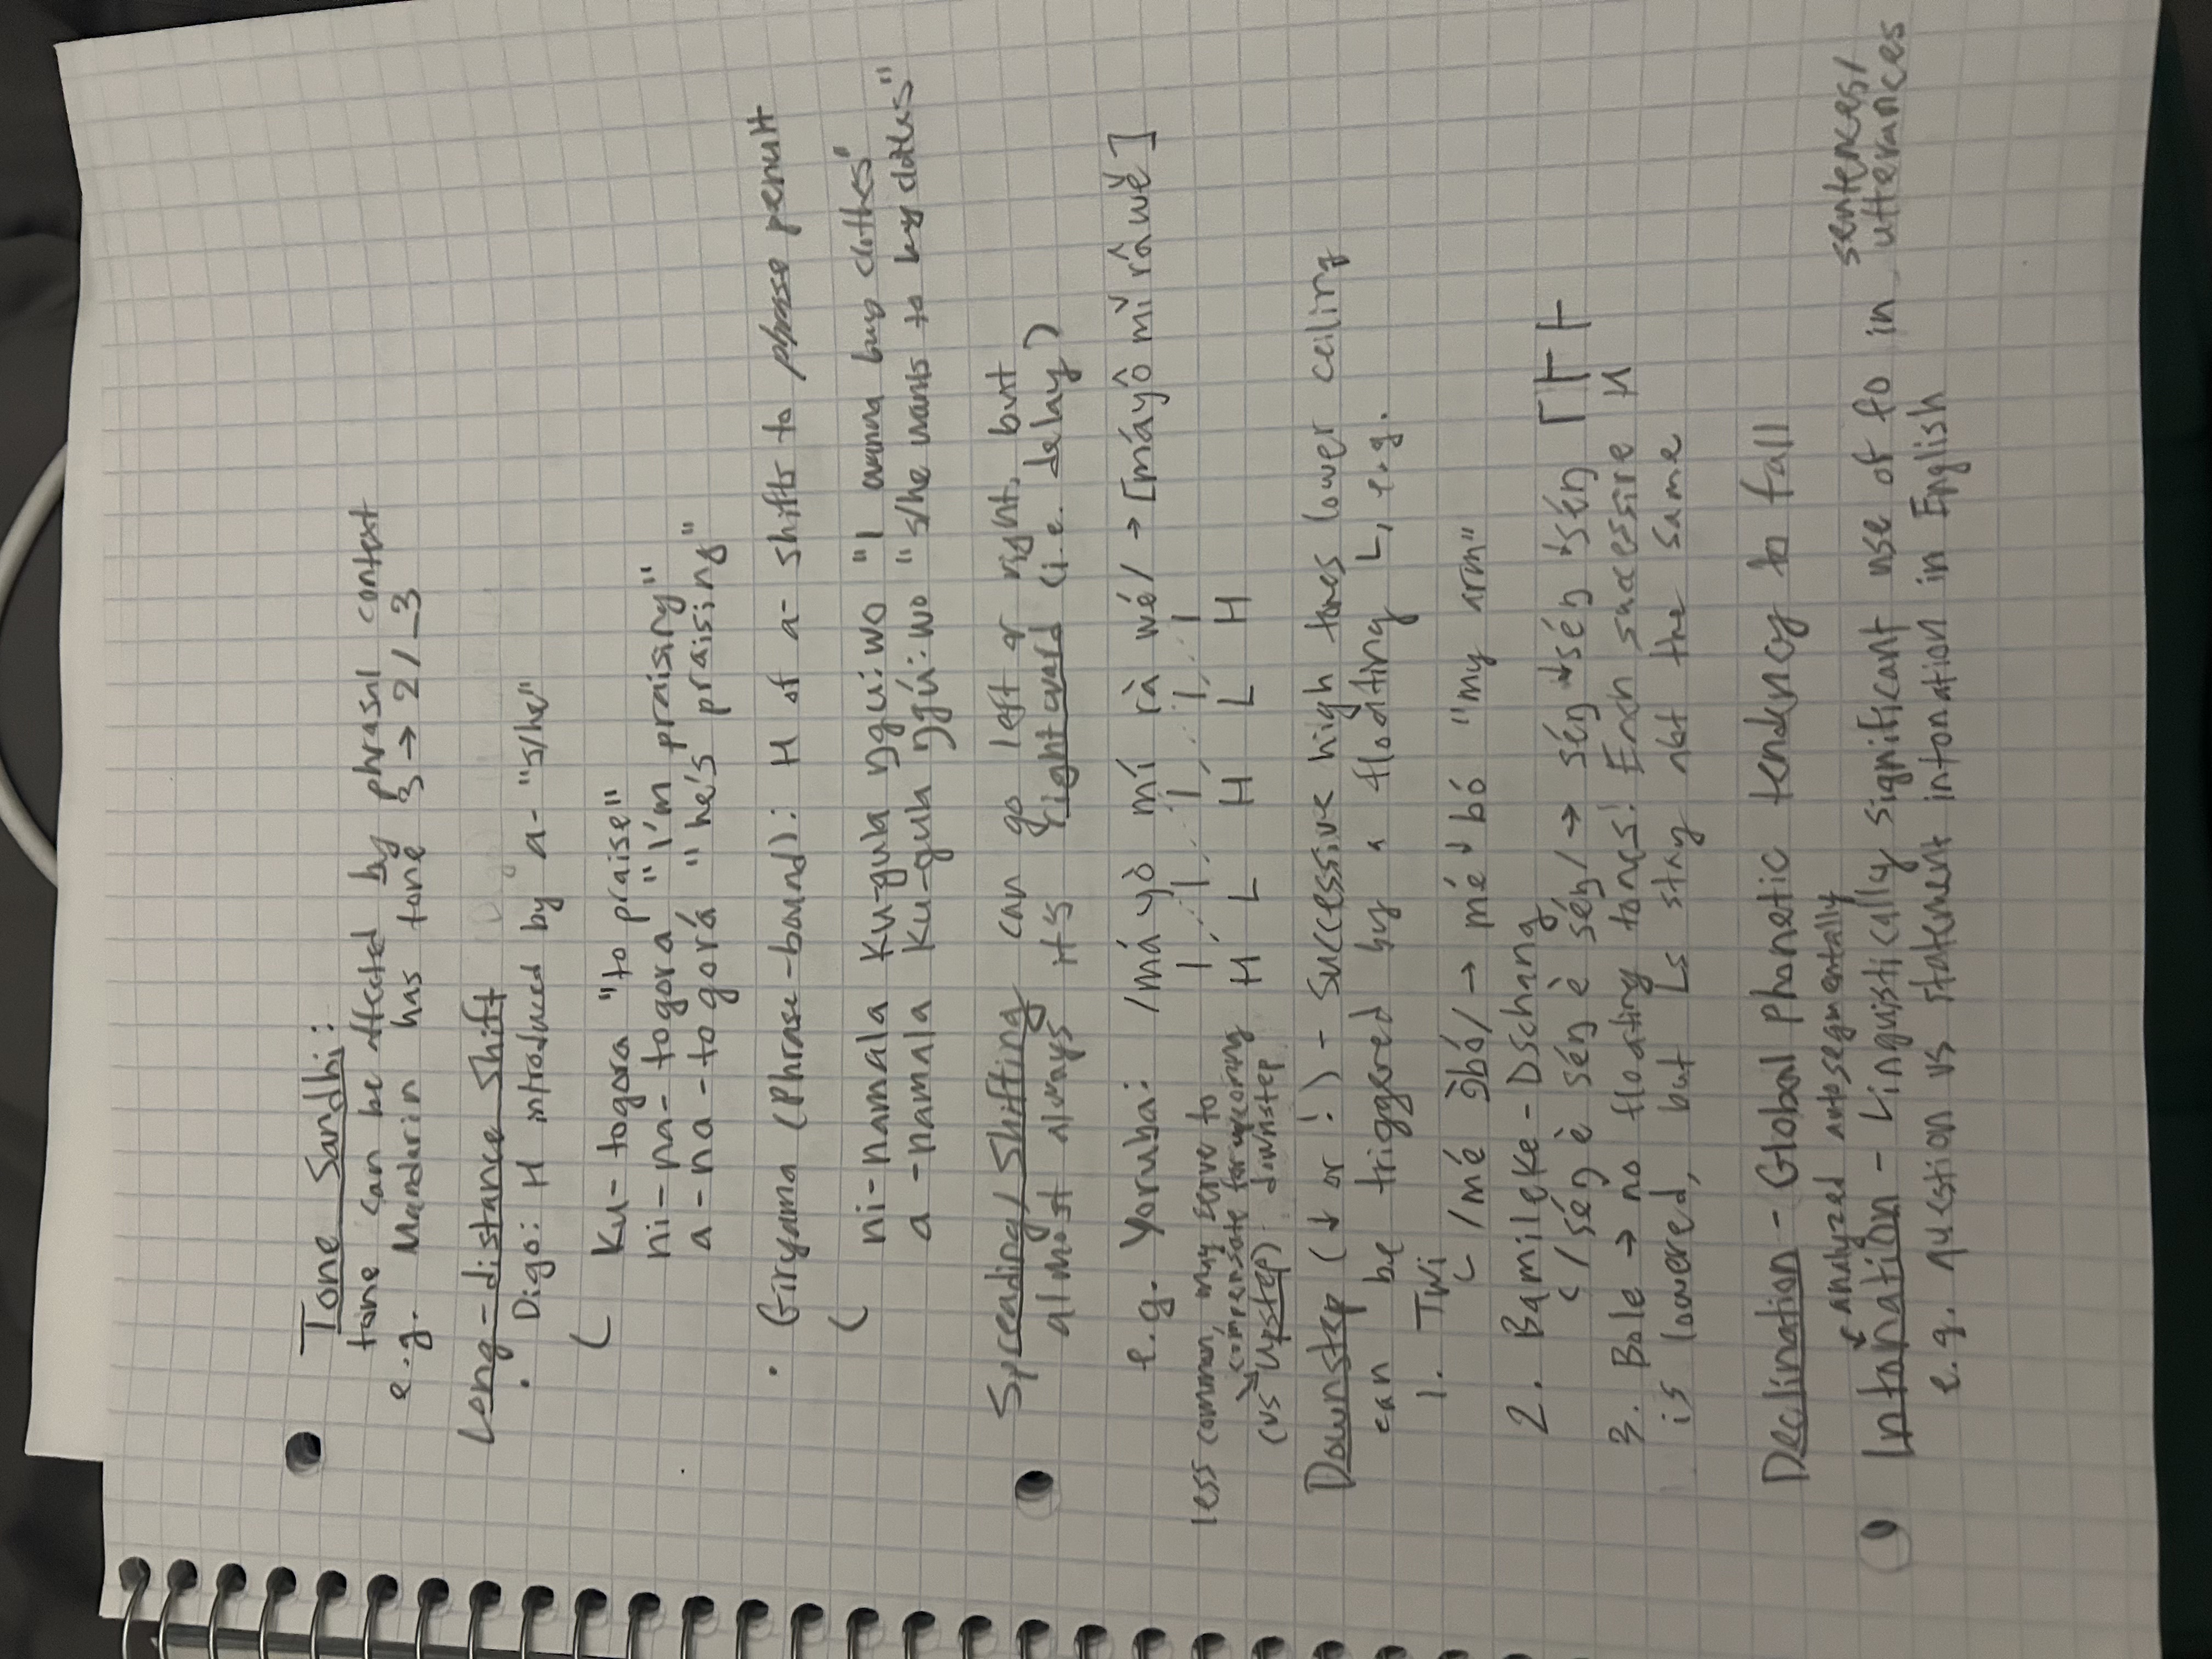 Tone Sandhi:
tone can be affected by phrasal context
e.g. Mandarin has tone 3 → 2 / _3
Long-distance Shift
• Digo: H introduced by a- "s/he"
Ku-togora "to praise"
ni-na-togora "I'm praising"
a-na-togorá "he's praising"
• Giryama (Phrase-bound): H of a- shifts to phrase penult
ni-namala Ku-gula ŋgu:wo "I wanna buy clothes"
a-namala Ku-gula ŋgú:wo "s/he wants to buy clothes"
Spreading/Shifting can go left or right, but
almost always it's rightward (i.e. delay)
e.g. Yoruba: /máyò mí rà wé/ → [máyô mǐ râwě]
H L H L H
less common, may serve to
compensate for upcoming
(vs Upstep) downstep
Downstep (↓ or !) - Successive high tones lower ceiling
can be triggered by a floating L, e.g.
1. Twi
/mé ɔ̀bó/ → mé ↓ bó "my arm"
2. Bamileke-Dschang
/séŋ è séŋ è séŋ/ → séŋ ↓séŋ ↓séŋ
3. Bole → no floating tones! Each successive H
is lowered, but Ls stay abt the same
Declination - Global phonetic tendency to fall
analyzed autosegmentally
Intonation - Linguistically significant use of f0 in sentences/
utterances
e.g. question vs statement intonation in English